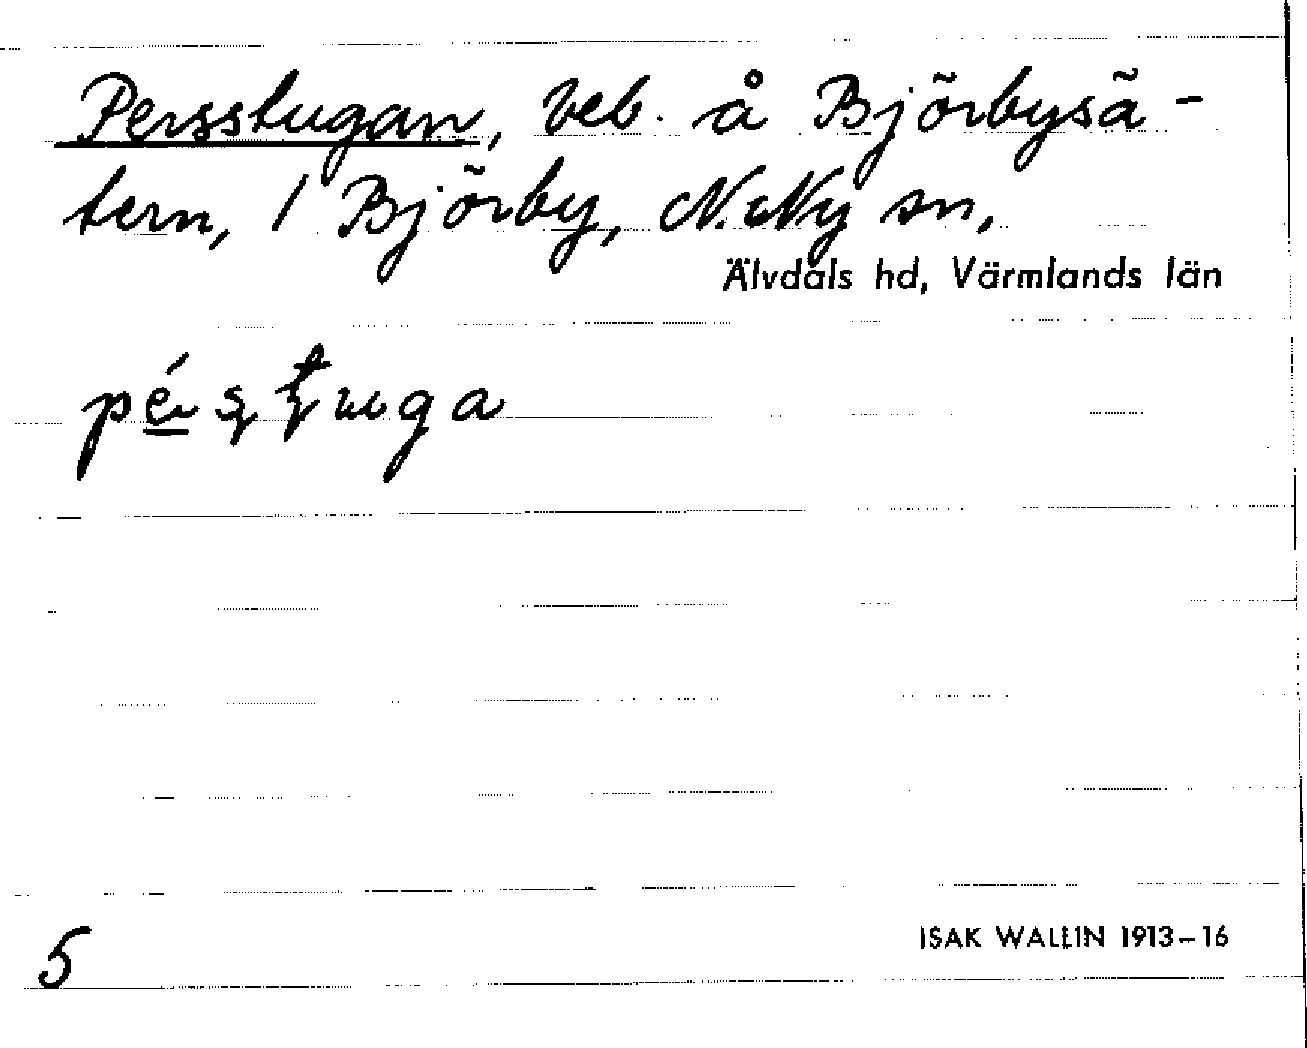 Persstugan, beb. å Björbysä-
tern, 1 Björby, N. Ny sn,
Älvdals hd, Värmlands län
pé̱ʂʈuga
5
ISAK WALLIN 1913–16